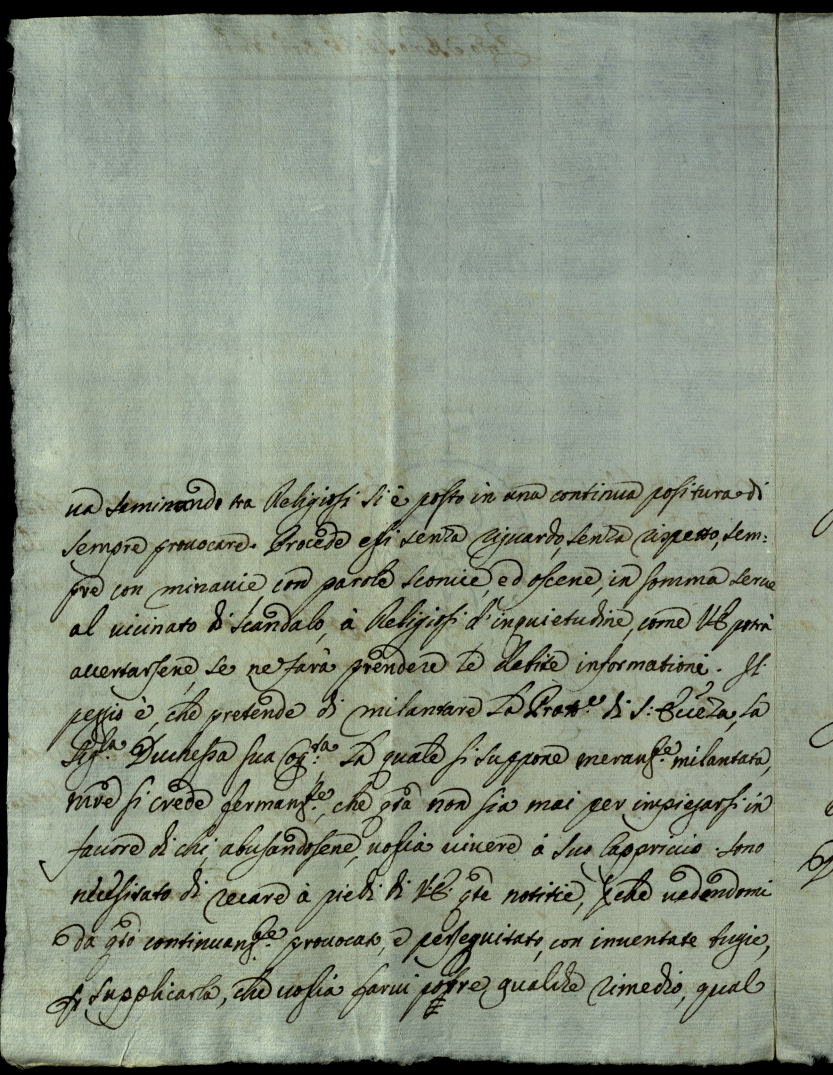 va seminando tra Religiosi si è posto in una continua positura di
sempre provocare. Procede essi senza riguardo, senza rispetto, sem:
pre con minavie con parole sconcie, ed oscene, in somma serve
al vicinato di scandalo, à Religiosi d'inquietudine, come V.E. potrà
accertarsene, se ne farà prendere le debite informationi. Il
peggio è, che pretende di milantare la Prott.ne di S: Ecc.za la
Sig.ra Duchessa sua Cog.ta la quale si suppone meram.te milantata,
mre si crede fermam.te, che q̃ta non sia mai per impiegarsi in
favore di chi, abusandosene, voglia vivere à suo Cappriccio. Sono
necessitato di recare à piedi di V.E. q̃te notitie, p̃che vedendomi
da q̃to continuam.te provocato, e perseguitato, con inventate bugie,
p̃ supplicarla, che voglia farvi porre qualche rimedio, qual